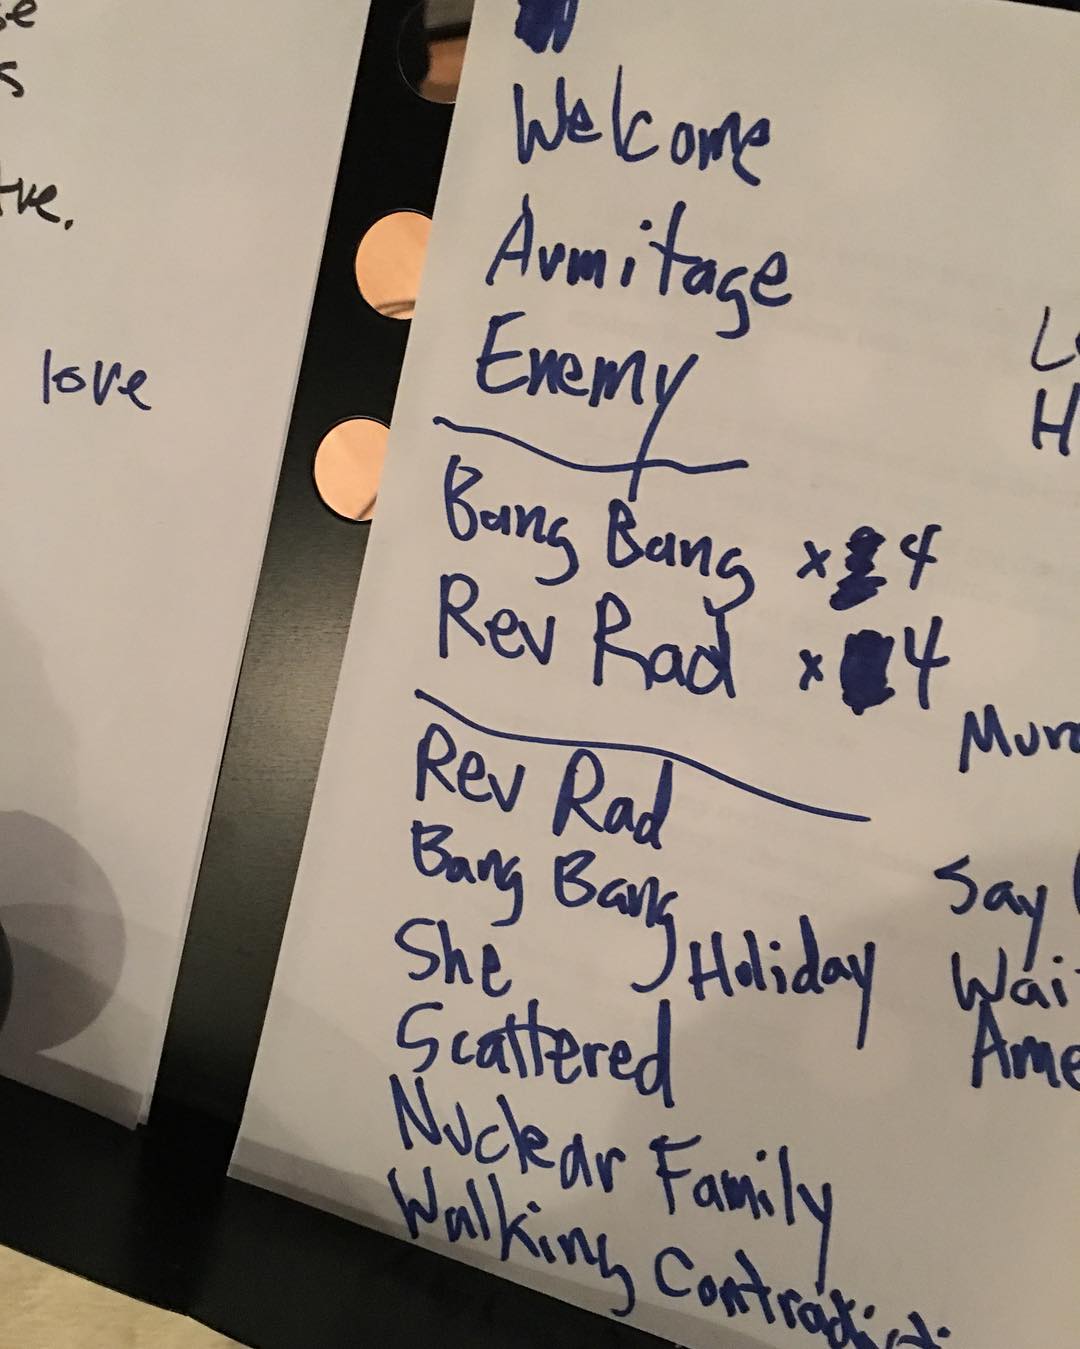 love
Welcome
Armitage
Enemy
Bang Bang x 4
Rev Rad x 4
Rev Rad
Bang Bang
She Holiday
Scattered
Nuclear Family
Walking
Say